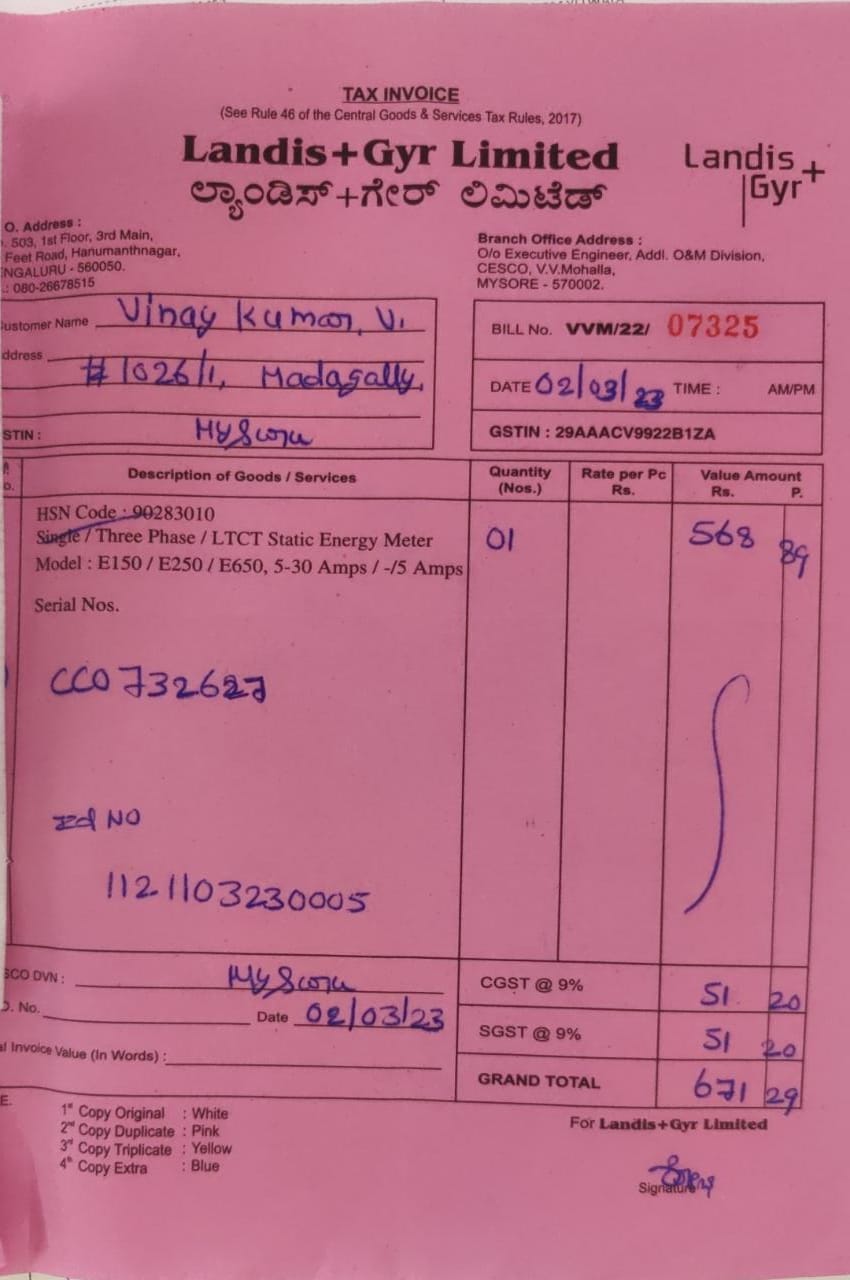 TAX INVOICE
(See Rule 46 of the Central Goods & Services Tax Rules, 2017)
Landis+Gyr Limited
ಲ್ಯಾಂಡಿಸ್+ಗೇರ್ ಲಿಮಿಟೆಡ್
Landis+
Gyr
O. Address :
503, 1st Floor, 3rd Main,
Feet Road, Hanumanthnagar,
NGALURU - 560050.
.: 080-26678515
Branch Office Address :
O/o Executive Engineer, Addl. O&M Division,
CESCO, V.V.Mohalla,
MYSORE - 570002.
ustomer Name Vinay Kumar, V.
ddress
#1026/1, Madagally,
STIN : Mysoru
BILL No. VVM/22/ 07325
DATE 02/03/23 TIME : AM/PM
GSTIN : 29AAACV9922B1ZA
o. Description of Goods / Services Quantity (Nos.) Rate per Pc Rs. Value Amount Rs. P.
HSN Code : 90283010
Single / Three Phase / LTCT Static Energy Meter 01 568 89
Model : E150 / E250 / E650, 5-30 Amps / -/5 Amps
Serial Nos.
CC0732627
Id NO
1121103230005
SCO DVN : Mysoru
. No. Date 02/03/23
al Invoice Value (In Words) :
CGST @ 9% 51 20
SGST @ 9% 51 20
GRAND TOTAL 671 29
E.
1st Copy Original : White
2nd Copy Duplicate : Pink
3rd Copy Triplicate : Yellow
4th Copy Extra : Blue
For Landis+Gyr Limited
Signature